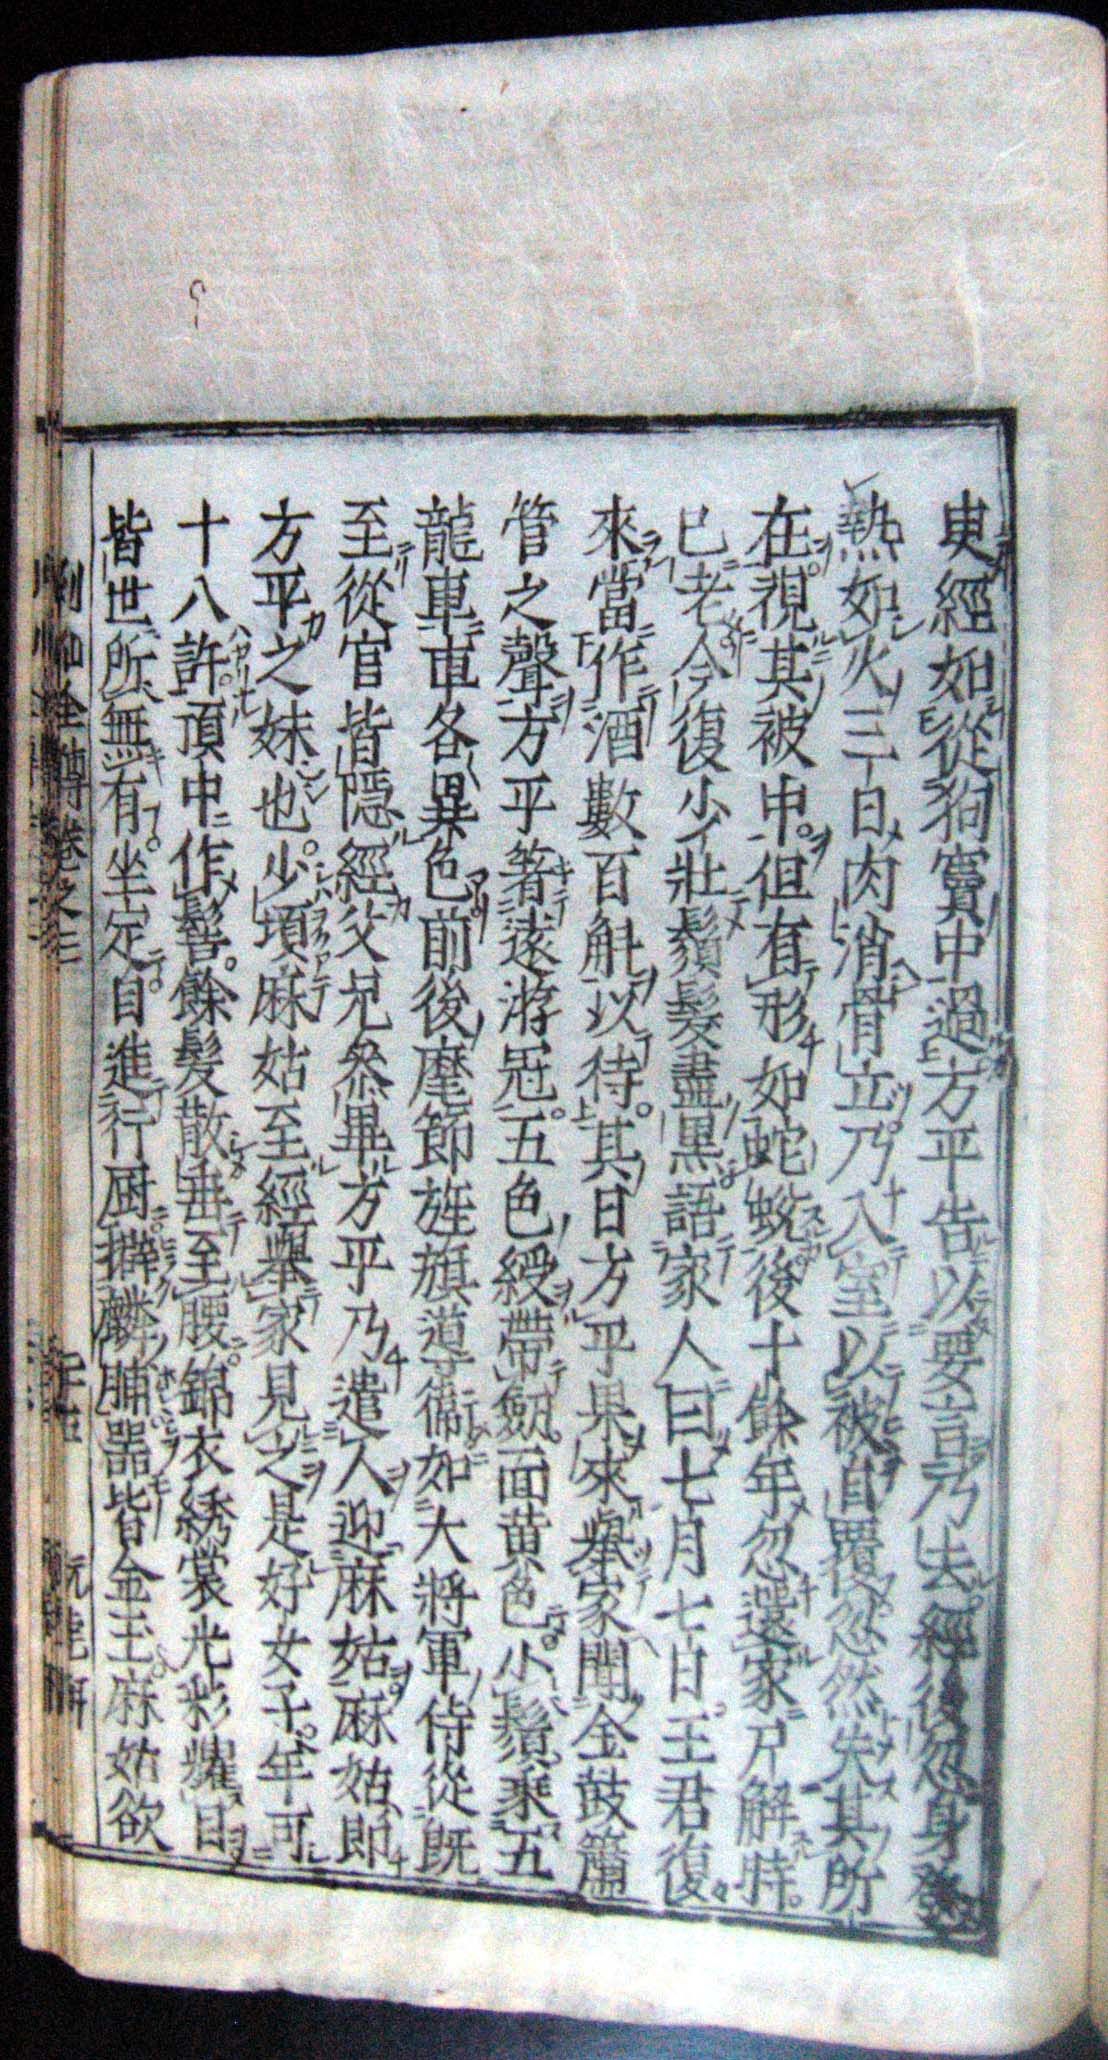 㬰經如從狗竇中過方平告以要言乃去經後忽身發
熱如火三日肉消骨立乃入室以被自覆忽然失其所
在視其被中但有形如蛇蛻後十餘年忽還家尸解時
已老今復少壯鬚髮盡黑語家人曰七月七日王君復
來當作酒數百斛以待其日方平果來擧家聞金鼓簫
管之聲方平著遠游冠五色綬帶劒面黃色小鬚乘五
龍車車各異色前後麾節旌旗導衛如大將軍侍從既
至從官皆隱經父兄叅畢方平乃遣人迎麻姑麻姑即
方平之妹也少頃麻姑至經擧家見之是好女子年可
十八許頂中作髻餘髮散垂至腰錦衣綉裳光彩耀目
皆世所無有坐定自進行厨擗麟脯器皆金玉麻姑欲
列仙全傳卷之三